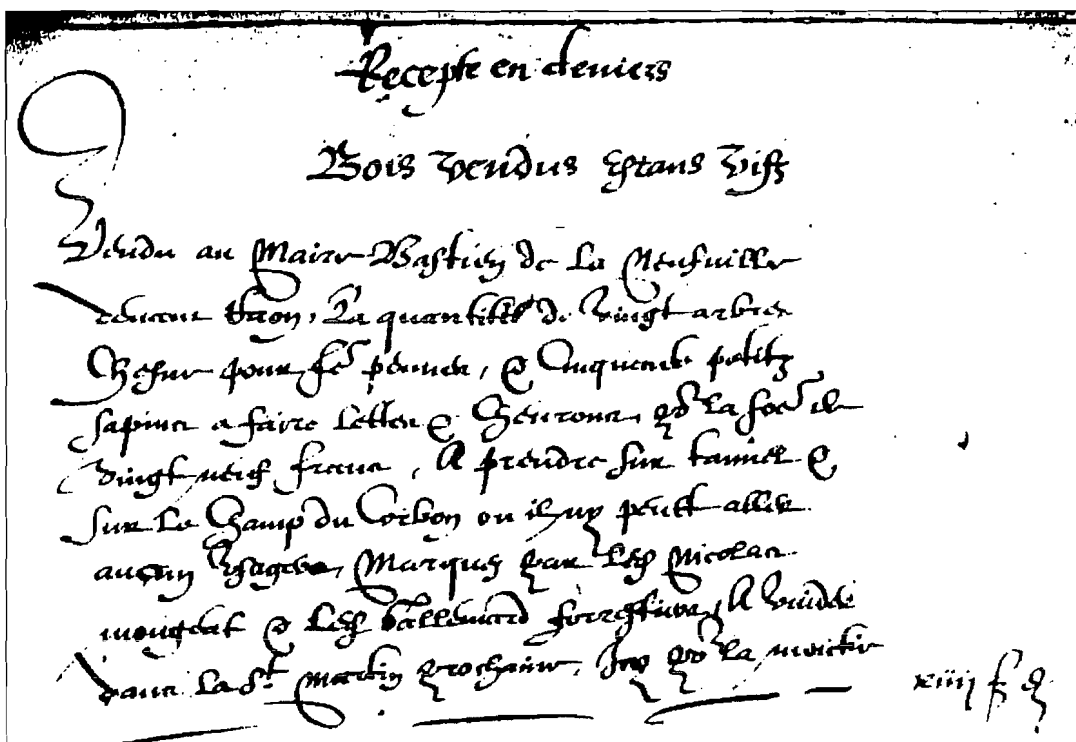 Recepte en deniers
Bois vendus estans vifz
Vendu au Maire Bastien de la Neufville
devant Raon, La quantité de vingt arbres
Chesne pour pennes, & Cinquante petitz
sapins a faire lettes & Chevrons, po^r la so^e de
vingt neuf frans, A prendre sur &
sur le Champ du Corbon ou il ny peult aller
aucun usagers, Marques par Nicolas
mougeat & forestiers, A vuider
dans la S^t martin prochaine, Icy po^r la moictie
xiiij f d